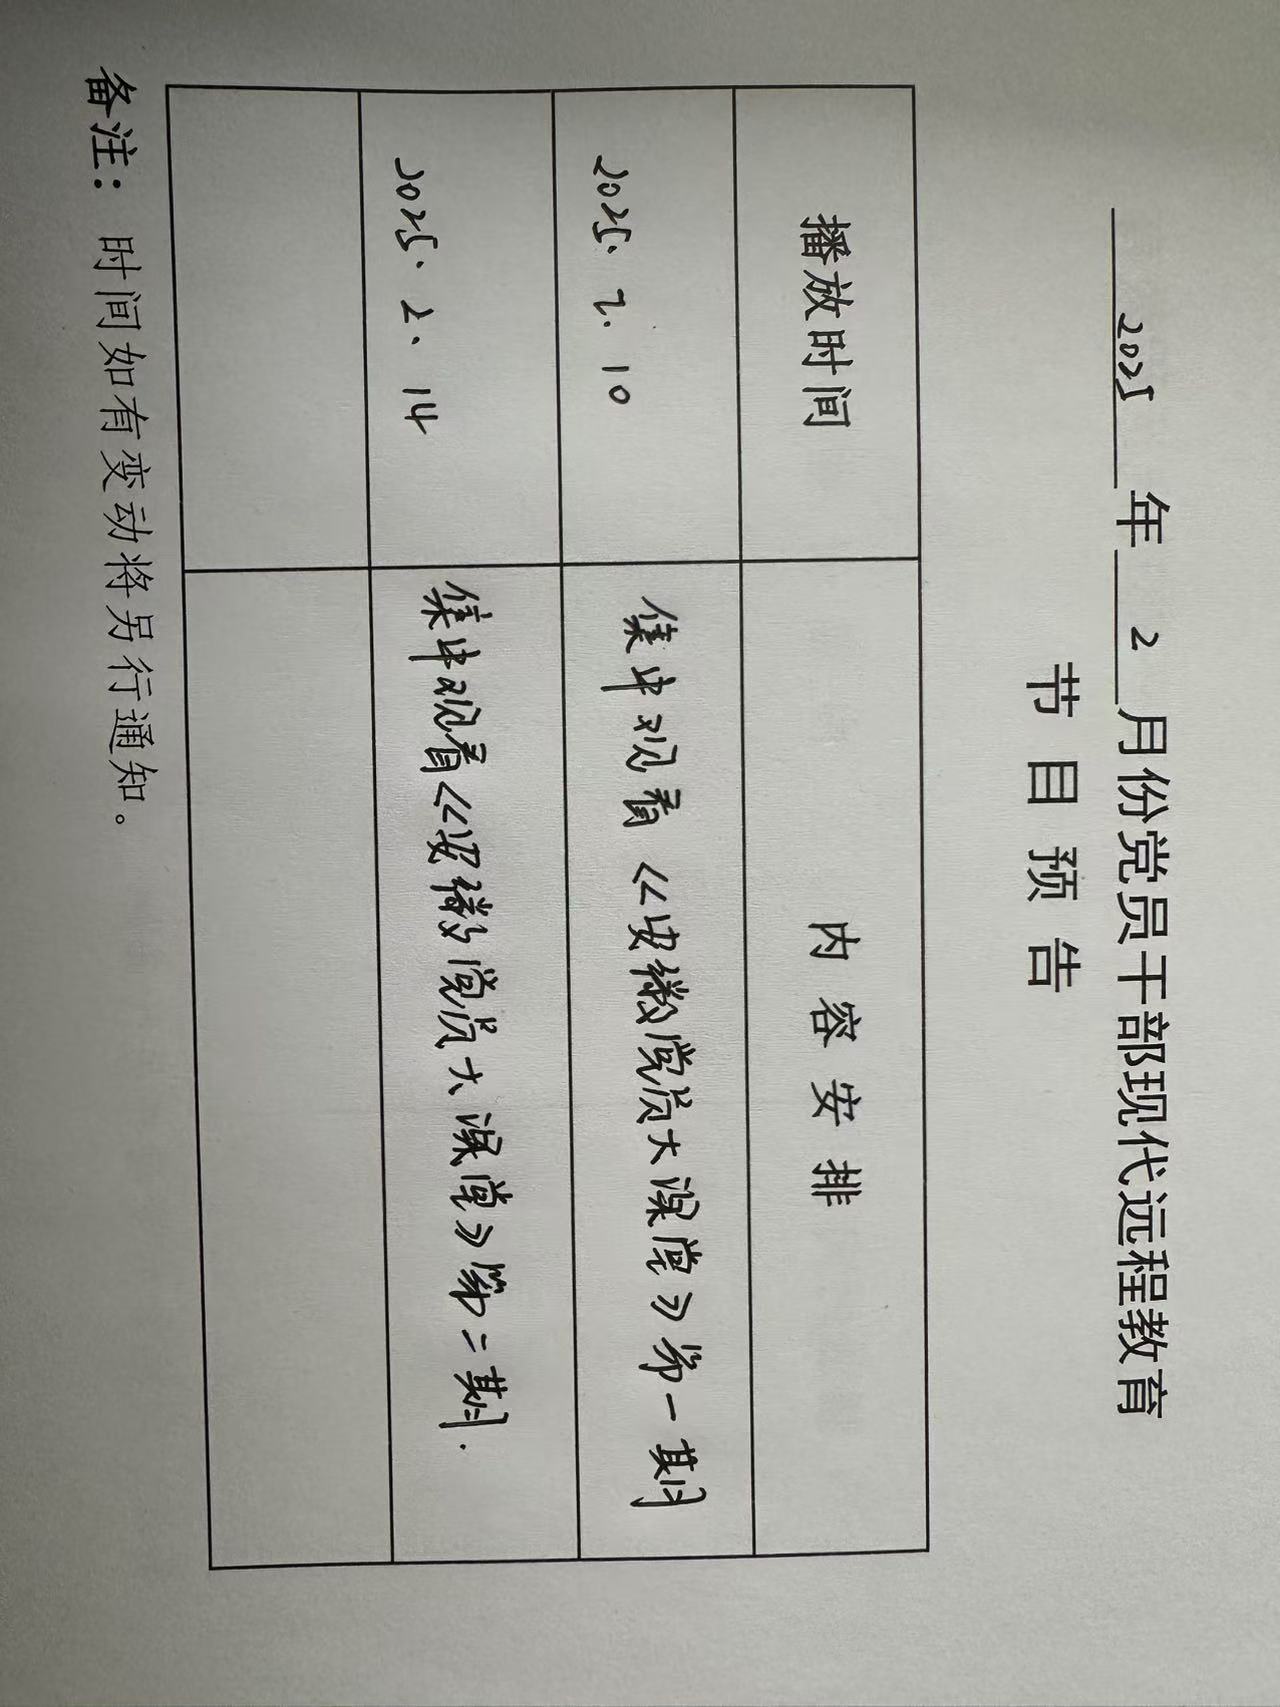 2025年2月份党员干部现代远程教育
节目预告
播放时间 内容安排
2025.2.10 集中观看《安徽党员大课堂》第一期
2025.2.14 集中观看《安徽党员大课堂》第二期.
备注：时间如有变动将另行通知。